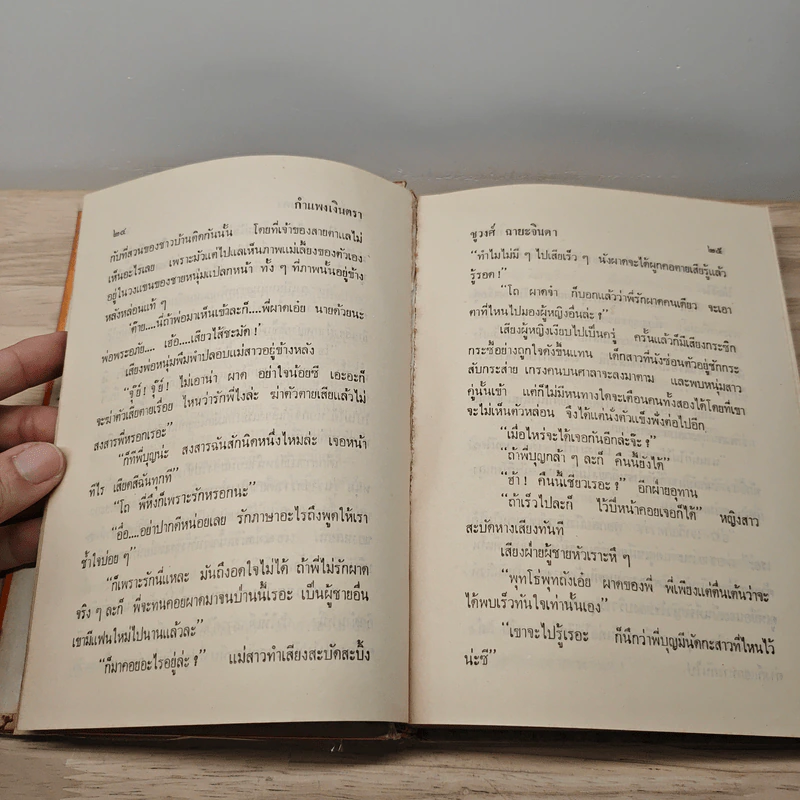 ๒๔
กำแพงเงินตรา
กับที่สวนของชาวบ้านติดกันนั้น โดยที่เจ้าของสายตาแลไม่
เห็นอะไรเลย เพราะมัวแต่ไปแลเห็นภาพแม่เลี้ยงของตัวเอง
อยู่ในวงแขนของชายหนุ่มแปลกหน้า ทั้ง ๆ ที่ภาพนั้นอยู่ข้าง
หลังหล่อนแท้ ๆ
“ต๊าย....นี่ถ้าพ่อมาเห็นเข้าละก็....พี่ผาดเอ๋ย นายด้วยนะ
พ่อพระอภัย.... เฮ้อ....เสียวไส้ชะมัด !”
เสียงพ่อหนุ่มพึมพำปลอบแม่สาวอยู่ข้างหลัง
“จุ๊ย์ ! จุ๊ย์ ! ไม่เอาน่า ผาด อย่าใจน้อยซี เอะอะก็
จะฆ่าตัวเสียตายเรื่อย ไหนว่ารักพี่ไงล่ะ ฆ่าตัวตายเสียแล้วไม่
สงสารพี่หรอกเรอะ”
“ก็ทีพี่บุญน่ะ สงสารฉันสักนิดหนึ่งไหมล่ะ เจอหน้า
ทีไร เสียดสีฉันทุกที”
“โถ พี่หึงก็เพราะรักหรอกนะ”
“อื้อ....อย่าปากดีหน่อยเลย รักภาษาอะไรถึงพูดให้เรา
ช้ำใจบ่อย ๆ”
“ก็เพราะรักนี่แหละ มันถึงอดใจไม่ได้ ถ้าพี่ไม่รักผาด
จริง ๆ ละก็ พี่จะทนคอยผาดมาจนป่านนี้เรอะ เป็นผู้ชายอื่น
เขามีแฟนใหม่ไปนานแล้วละ”
“ก็มาคอยอะไรอยู่ล่ะ ?” แม่สาวทำเสียงสะบัดสะบิ้ง
ชูวงศ์ ฉายะจินดา
๒๕
“ทำไมไม่มี ๆ ไปเสียเร็ว ๆ นังผาดจะได้ผูกคอตายเสียรู้แล้ว
รู้รอด !”
“โถ ผาดจ๋า ก็บอกแล้วว่าพี่รักผาดคนเดียว จะเอา
ตาที่ไหนไปมองผู้หญิงอื่นล่ะ ?”
เสียงผู้หญิงเงียบไปเป็นครู่ ครั้นแล้วก็มีเสียงกระซิก
กระซี้อย่างถูกใจดังขึ้นแทน เด็กสาวที่นั่งซ่อนตัวอยู่ชักกระ
สับกระส่าย เกรงคนบนศาลาจะลงมาตาม และพบหนุ่มสาว
คู่นั้นเข้า แต่ก็ไม่มีหนทางใดจะเตือนคนทั้งสองได้โดยที่เขา
จะไม่เห็นตัวหล่อน จึงได้แต่นั่งตัวแข็งฟังต่อไปอีก
“เมื่อไหร่จะได้เจอกันอีกล่ะจ๊ะ ?”
“ถ้าพี่บุญกล้า ๆ ละก็ คืนนี้ยังได้”
“ฮ้า ! คืนนี้เชียวเรอะ ?” อีกฝ่ายอุทาน
“ถ้าเร็วไปละก็ ไว้ปีหน้าคอยเจอก็ได้” หญิงสาว
สะบัดหางเสียงทันที
เสียงฝ่ายผู้ชายหัวเราะหึ ๆ
“พุทโธ่พุทถังเอ๋ย ผาดของพี่ พี่เพียงแต่ตื่นเต้นว่าจะ
ได้พบเร็วทันใจเท่านั้นเอง”
“เขาจะไปรู้เรอะ ก็นึกว่าพี่บุญมีนัดกะสาวที่ไหนไว้
น่ะซี”